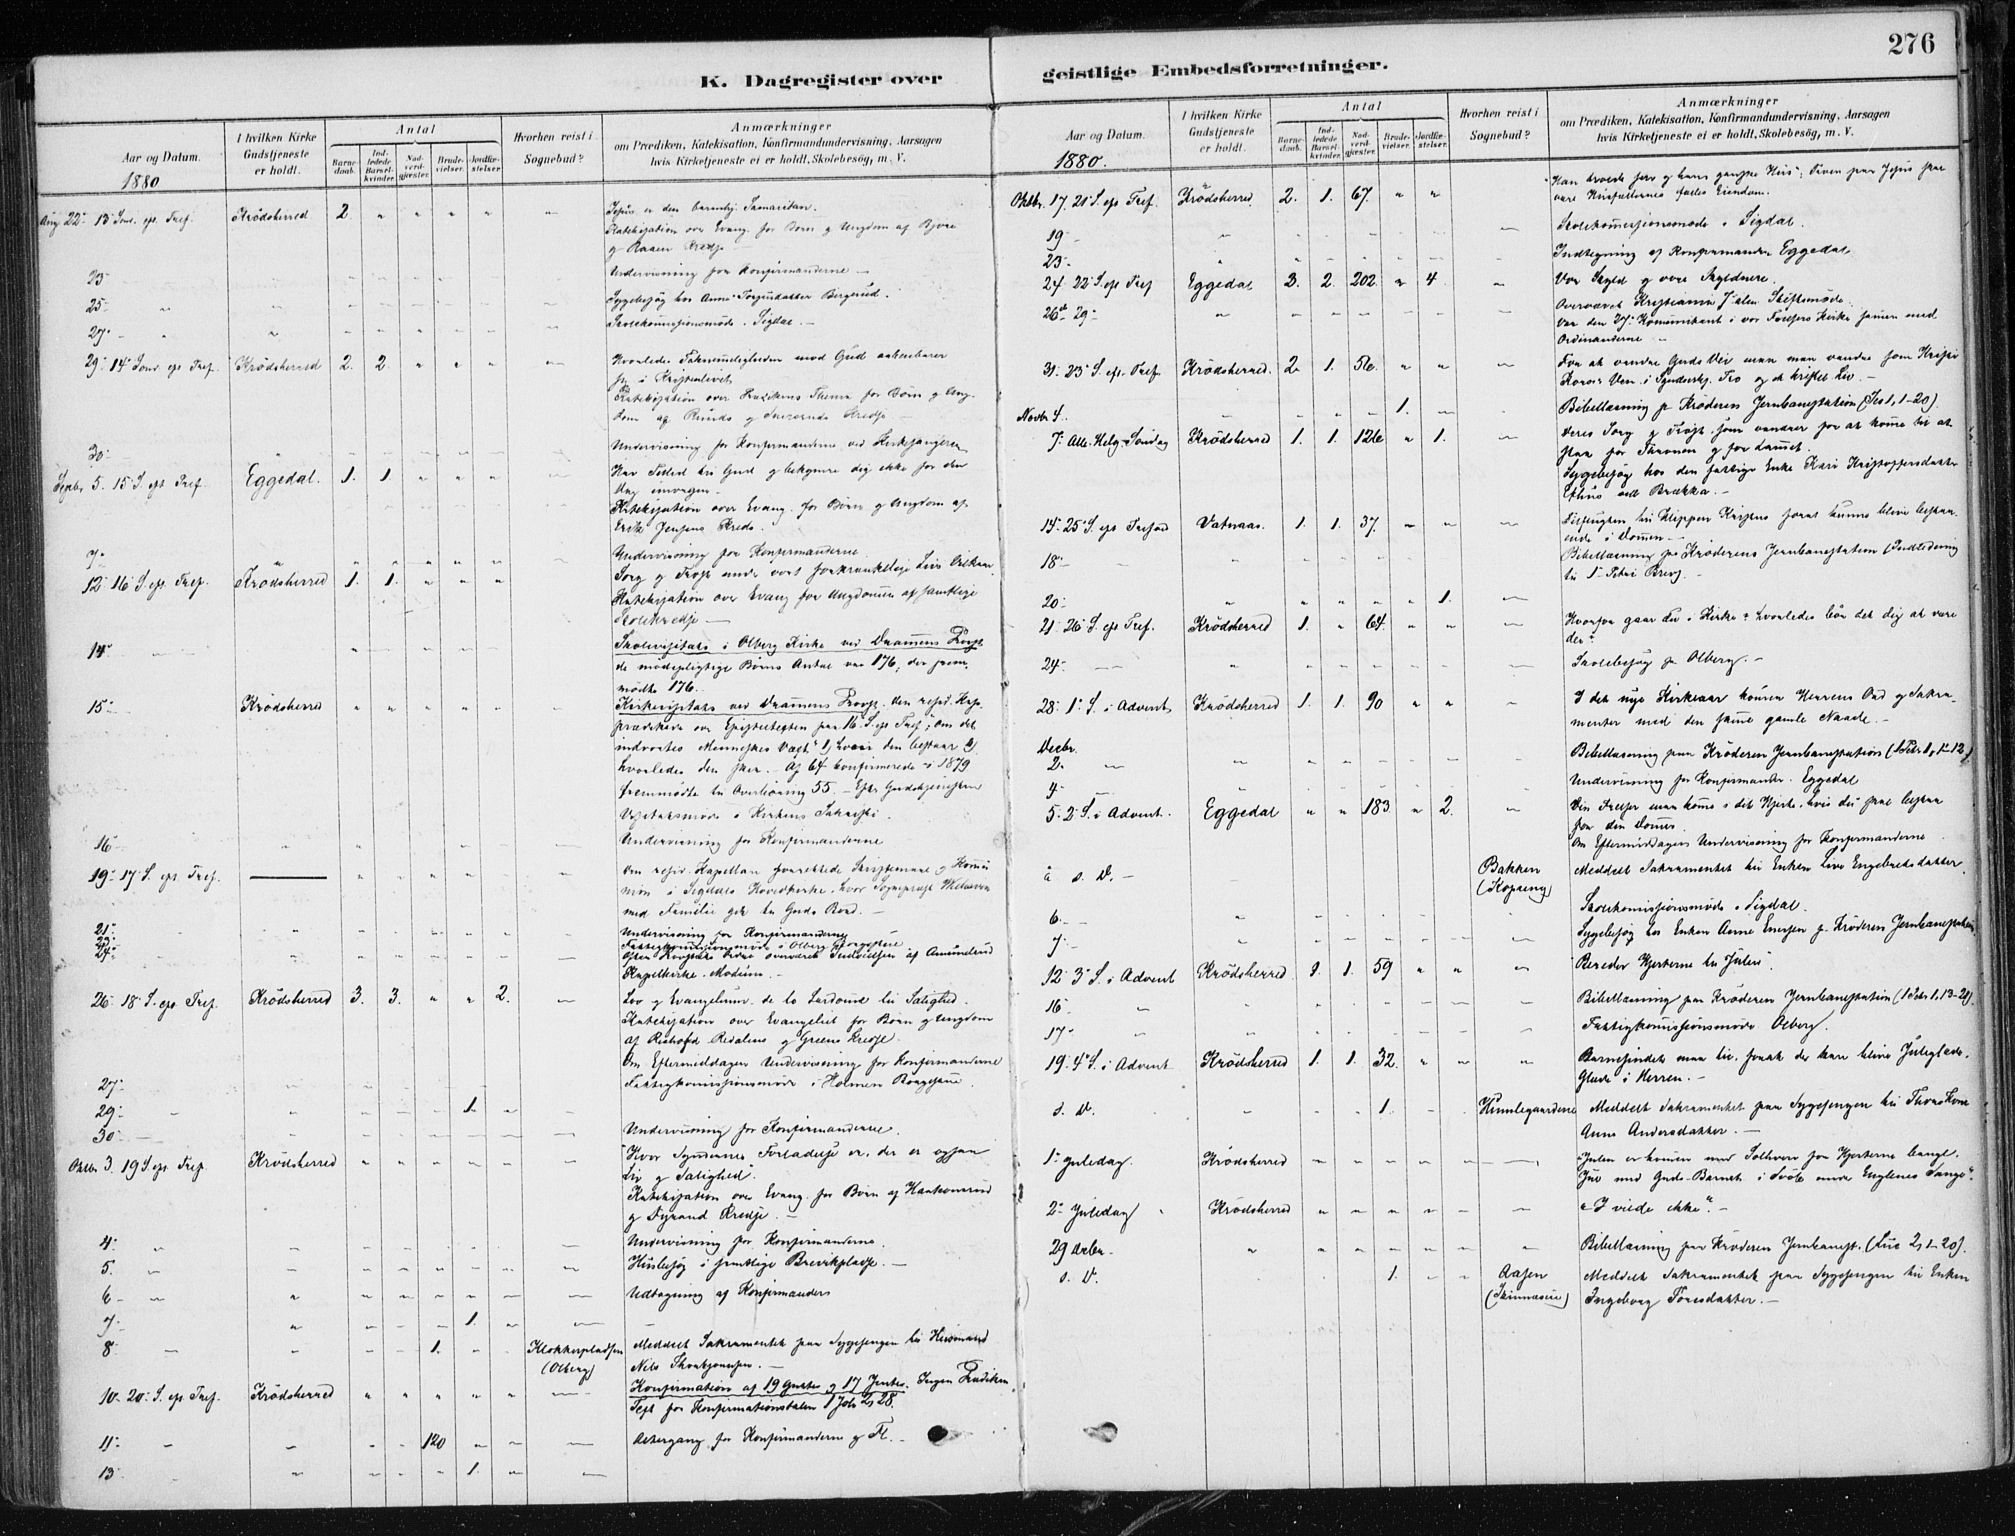 276
K. Dagregister over
Aar og Datum.
1880
I hvilken Kirke
Gudstjeneste
er holdt.
Antal
Barne-
daab.
Ind-
ledede
Barsel-
kvinder.
Nad-
verd-
gjæster.
Brude-
vielser.
Jordfæ-
stelser.
Hvorhen reist i
Sognebud?
Anmærkninger
om Prædiken, Katekisation, Konfirmandundervisning, Aarsagen
hvis Kirketjeneste ei er holdt, Skolebesög, m. V.
Aug. 22 13 Sønd. eft. Tref. Krödsherred 2. Jesus er den barmhj. Samaritan.
Katekisation over Evang. for Børn og Ungdom af Bjøre
23 Undervisning for Konfirmanderne
25 Sygebesøg hos Anne Bergerud.
27 Skolekomissionsmøde i Sigdal.
29 14 Sønd. eft. Tref. Krödsherred 2. 2. Hvorledes Taknemligheden mod Gud aabenbarer
sig i Kristenlivet
Katekisation over Prædikens Thema for Børn og Ung-
30 Undervisning for Konfirmanderne ved Kirkesangeren
Septbr. 5. 15 S. eft. Tref. Eggedal. 1. 1. Hav Tillid til Gud og bekymre dig ikke for den
Dag imorgen.
Katekisation over Evang. for Børn og Ungdom af
Erik Jensens Kreds.
7 Undervisning for Konfirmanderne
12 16 S. eft. Tref. Krödsherred 1. 1. Sorg og Trøst under vort
Katekisation over Evang. for Ungdommen af samtlige
Skolekredse
14 Skolevisitats i Olberg Kirke ved Dramens Provst
de mødepligtige Børns Antal var 176, der frem-
mødte 176.
15 Krödsherred Kirkevisitats ved Dramens Provst. Den resid. Kap.
prædikede over Epistelteksten paa 16 S. eft. Tref. "om det
indvortes Menneskes Væxt" 1) hvori den bestaar 2)
hvorledes den sker. Af 64 konfirmerede i 1879
fremmødte til Overhøring 55. Efter Gudstjenesten
Visitatsmøde i Kirkens Sakristi.
16 Undervisning for Konfirmanderne
19 17 S. eft. Tref. ——— Den resid. Kapellan forrettede Skriftemaal og Kommu
nion i Sigdals Hovedkirke, hvor Sogneprest
med Familie gik til Guds Bord.
21 Undervisning for Konfirmanderne
23 Fattigkomissionsmøde i Olberg
24 Efter Provstens Ordre overværet Indvielsen af Amundrud
Kapelkirke. Modum.
26 18 S. eft. Tref. Krödsherred 3. 3. 2. Lov og Evangelium. de to til Salighed.
Katekisation over Evangeliet for Børn og Ungdom
af Redalens og Greens Kredse.
Om Eftermiddagen Undervisning for Konfirmanderne
27 Fattigkomissionsmøde i Holmen
29 1.
30 Undervisning for Konfirmanderne.
Oktbr. 3. 19 S. eft. Tref. Krödsherred "Hvor Syndernes Forladelse er, der er ogsaa
Liv og Salighed".
Katekisation over Evang. for Børn af Haakonsrud
og Fyrand Kredse.
4. Undervisning for Konfirmanderne.
5. Husbesøg i samtlige Brevikpladse.
6 Udtagning af Konfirmander
7 1.
8 1. Klokkerpladsen
(Olberg) Meddelt Sakramentet paa Sygesengen til Huusmand
Nils
10 20 S. eft. Tref. Krödsherred Konfirmation af 19 Gutter og 17 Jenter. Ingen Prædiken.
Text for Konfirmationstalen 1 Joh. 2, 28.
11 120 Altergang for Konfirmanderne og Fl.
13 1.
geistlige Embedsforretninger.
Aar og Datum.
1880.
I hvilken Kirke
Gudstjeneste
er holdt.
Antal
Barne-
daab.
Ind-
ledede
Barsel-
kvinder.
Nad-
verd-
gjæster.
Brude-
vielser.
Jordfæ-
stelser.
Hvorhen reist i
Sognebud?
Anmærkninger
om Prædiken, Katekisation, Konfirmandundervisning, Aarsagen
hvis Kirketjeneste ei er holdt, Skolebesög, m. V.
Oktbr. 17. 21 S. eft Tref. Krödsherred 2. 1. 67. "Han troede selv og hans ganske Hus"; Troen paa Jesus skal
være Husfællernes fælles Eiendom.
19 Skolekomissionsmøde i Sigdal
23 Indtegning af Konfirmander Eggedal
24 22 S. eft Tref Eggedal 3. 2. 202 4. Vor Skyld og vore Skyldnere.
26 29 Overværet Kristiania Stiftsmøde.
Var den 27. Komunikant i vor Frelsers Kirke sammen med
Ordinanderne
31. 23 S. eft. Tref. Krödsherred. 2 1. 56. For at vandre Guds Vei maa man vandre som Kristi
Korses Ven i Tro og et kristet Liv.
Novbr 4. 1. Bibellæsning p. Krøderen Jernbanestation (Jes 1, 1-20).
7. Alle Helg. Søndag Krödsherred 1. 1. 126 1. Deres Sorg og Trøst, som vandrer for at komme til at
staa for Thronen og for Lammet.
Sygebesøg hos den fattige Enke Kari Kristoffersdatter
Ethus ved Brækka.
14 25 S. eft Trefold Vatnaas. 1. 1. 37. Tilflugten til Klippen Kristus forat kunne blive bestaa
ende i Dommen.
18 Bibellæsning paa Krøderens Jernbanestation (Indledning
til 1 Petri Brev).
20 1.
21. 26 S. eft Tref. Krödsherred 1. 64. Hvorfor gaar du i Kirke? hvorledes bør det dig at være
der?
24 Skolebesøg p. Olberg.
28. 1 S. i Advent Krödsherred 1. 1. 90 I det nye Kirkeaar kommer Herrens Ord og Sakra-
menter med den samme gamle Naade.
Decbr.
2. Bibellæsning paa Krøderen Jernbanestation (1 Petr. 1, 1-12)
4 Undervisning for Konfirmander. Eggedal
5. 2 S. i Advent. Eggedal 183 2. Din Frelser maa komme i dit Hjerte, hvis du skal bestaa
for din Dommer.
Om Eftermiddagen Undervisning for Konfirmanderne
s. D. Bakken
(Kopseng) Meddelt Sakramentet til Enken Live Engebretsdatter.
6. Skolekomissionsmøde i Sigdal.
7 Sygebesøg hos Enken Anne p. Krøderen Jernbanestation
12 3 S. i Advent Krödsherred 1. 1. 59 "Bereder Hjerterne til Julen".
16 Bibellæsning paa Krøderen Jernbanestation (1 Petr 1, 13-21).
17 Fattigkomissionsmøde Olberg.
19. 4 S. i Advent Krödsherred 1. 1. 32. Barnesindet maa til, forat der kan blive Juleglæde.
Glæde i Herren.
s. D. 1. Meddelt Sakramentet paa Sygesengen til
Anne Andersdatter.
1 Juledag. Krödsherred "Julen er kommen med Solhverv for Hjerterne bange.
Jul med Guds-Barnet i Svøb under Englenes Sange".
2 Juledag Krödsherred "I vilde ikke".
29 Decbr. Bibellæsning paa Krøderen Jernbanest. (Luc 2, 1-20).
s. D. 1. Aasen Meddelt Sakramentet paa Sygesengen til Enken
Ingeborg Toresdatter.